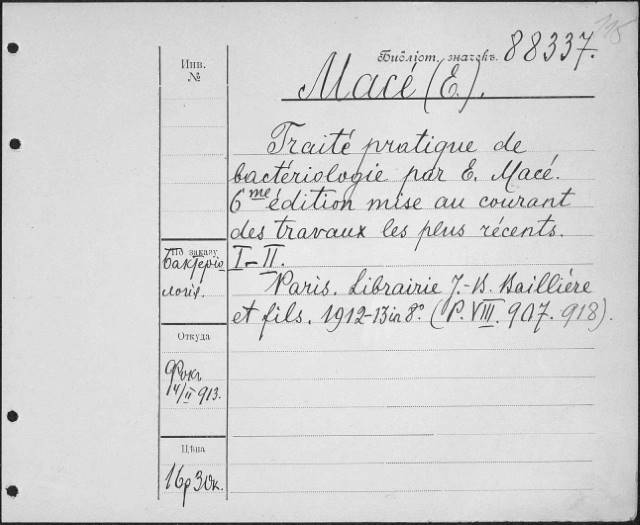 115
Библіот. значекъ. 88337.
Инв.
№
Macé (E.).
Traité pratique de
bactériologie par E. Macé.
6me édition mise au courant
des travaux les plus récents.
I-II.
Paris. Librairie J.-B. Baillière
et fils. 1912-13 in 8°. (P. VIII. 907. 918).
По заказу
Бактеріо-
логія.
Откуда
Фокъ
14/II 913.
Цѣна
16р 30к.